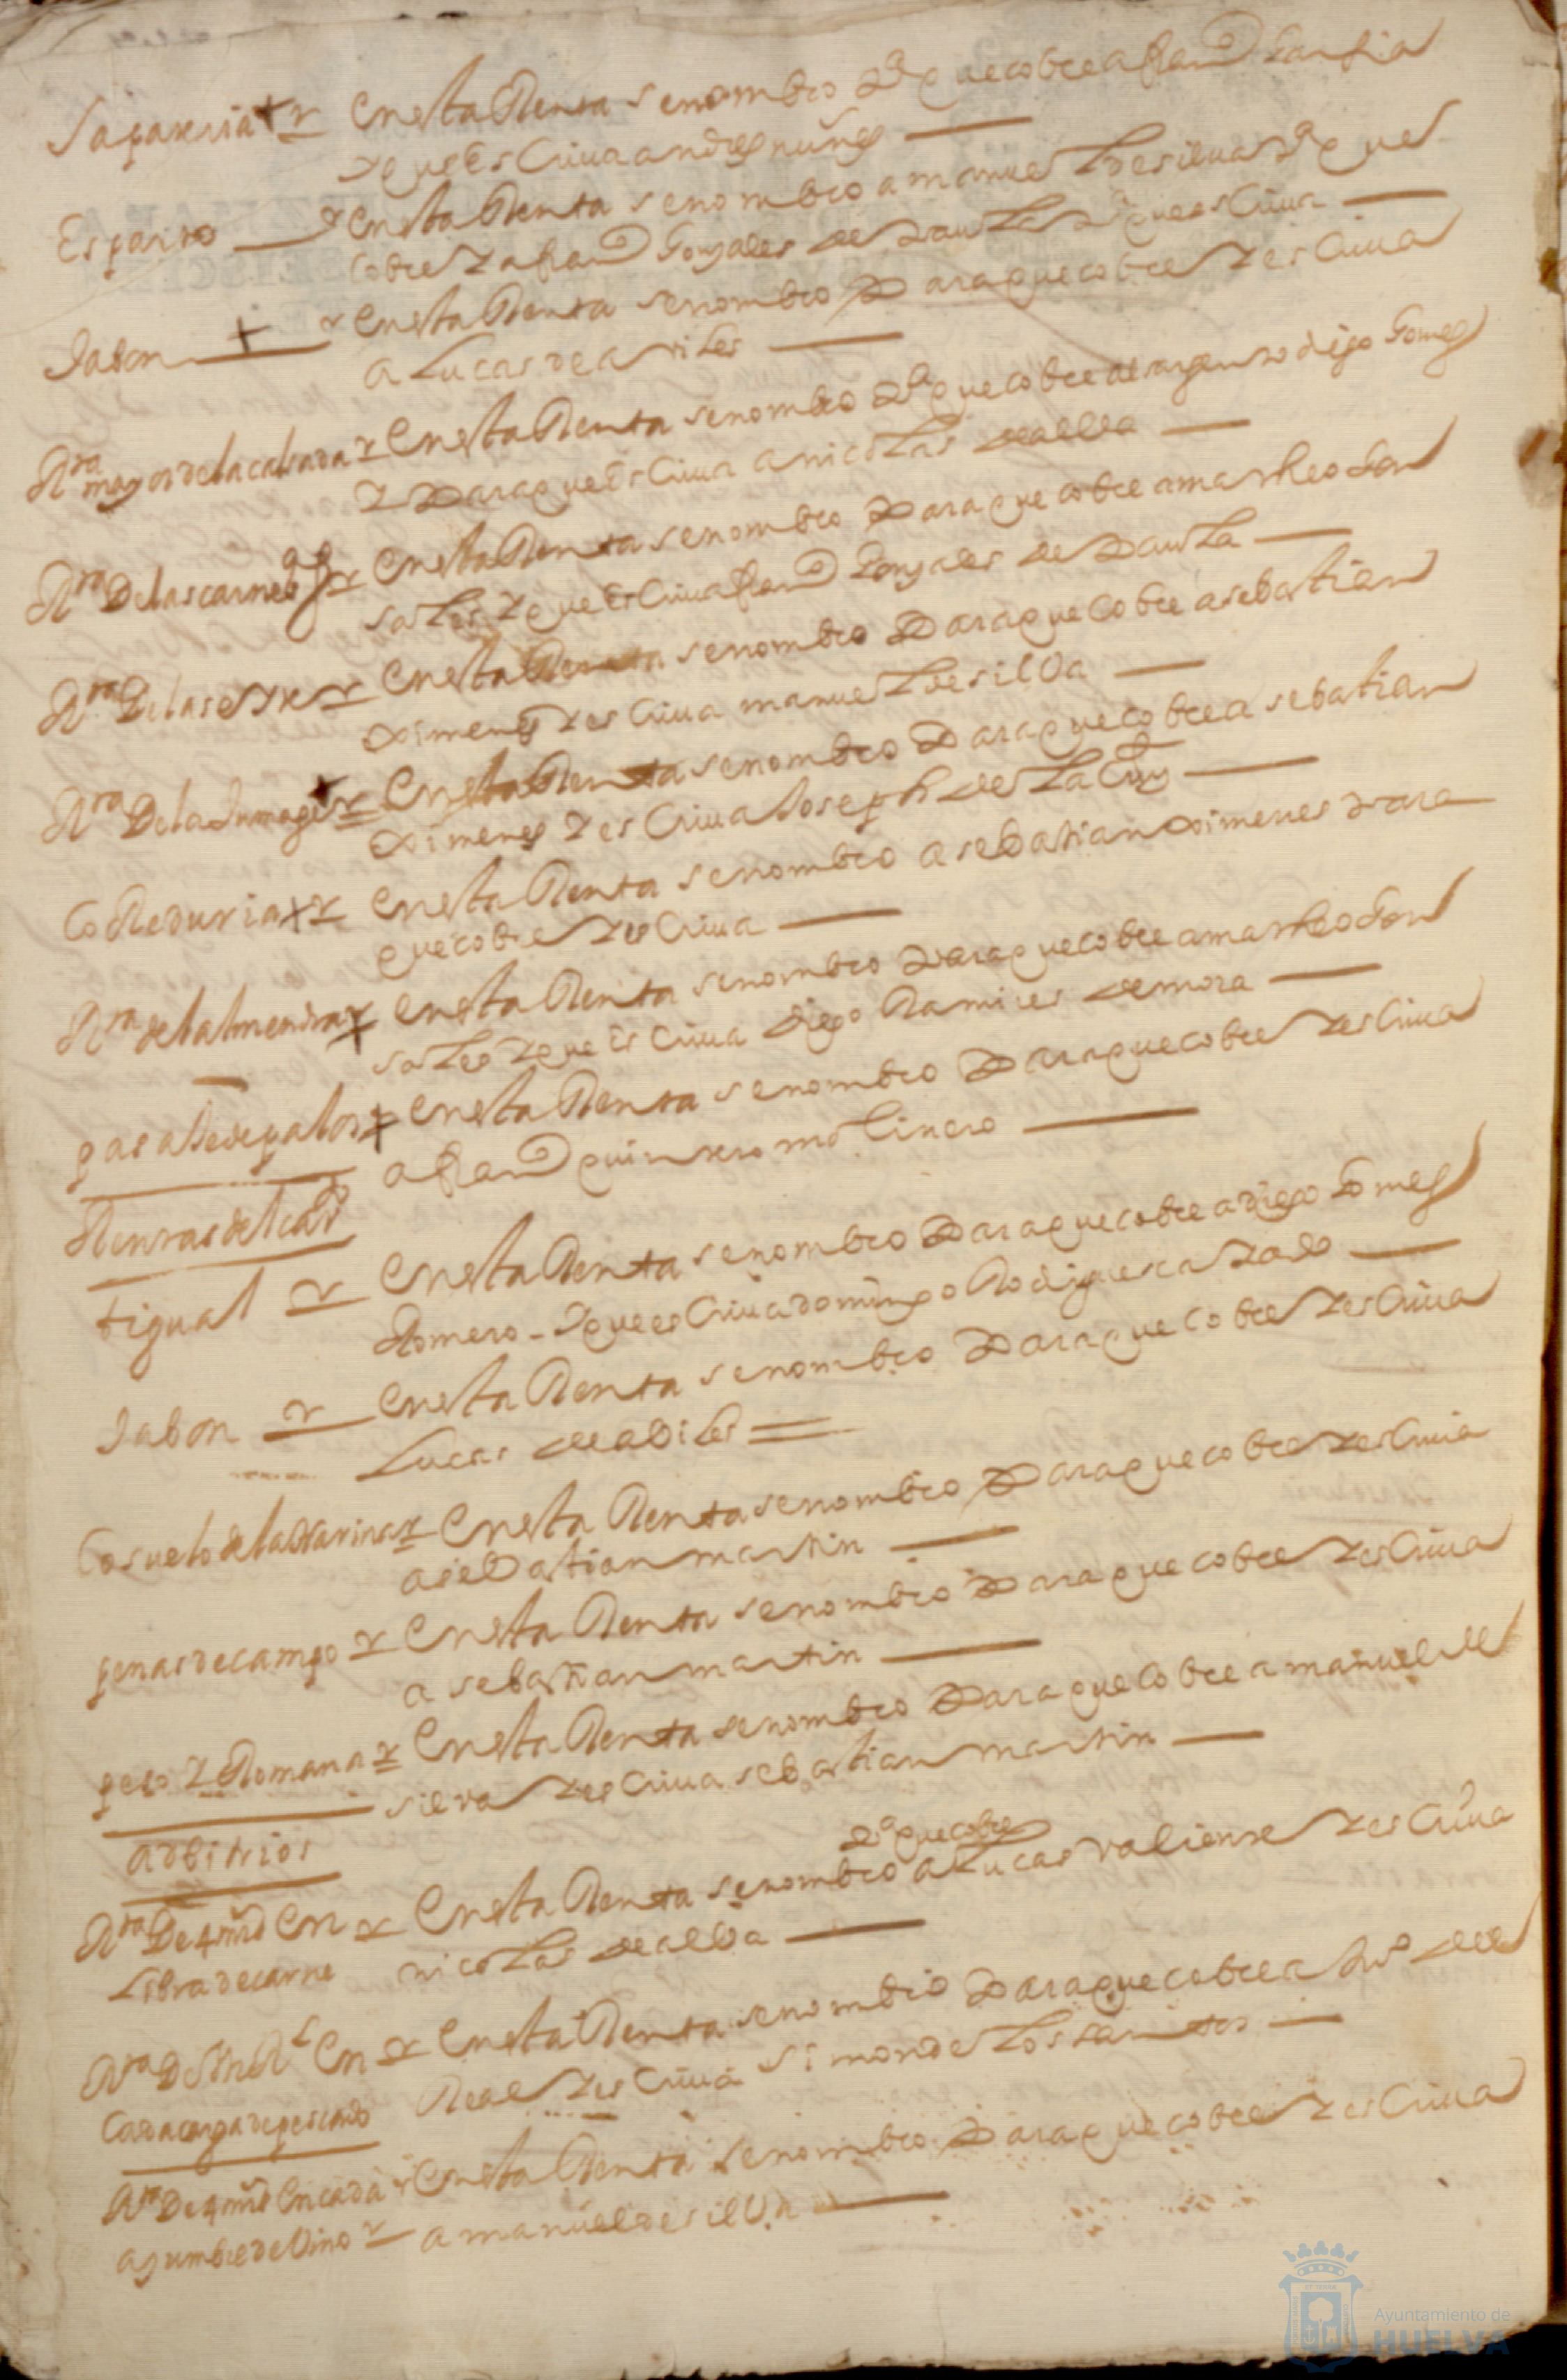 Sapateria + r En esta Renta se nombro Pa que cobre a franco Garsia
Y que Escriva andres nuñes
Esparto r En esta Renta se nombro a manuel de silva Pa que
cobre Y a franco Gonsales de Dauila Pa que escriva
Jabon + r En esta Renta se nombro Para que cobre Y escriva
a Lucas de aviles
Rta mayor de la calsada r En esta Renta se nombro Pa que cobre diego Gomes
Y Para que Escriva a nicolas de alba
Rta De las carnes r En esta Renta se nombro Para que cobre a matheo Gon
sales Y que Escriva franco Gonsales de Dauila
Rta De las r En esta Renta se nombro Para que Cobre a sebastian
Ximenes Y escriva manuel de silva
Rta De la Imagen + r En esta Renta se nombro Para que cobre a sebastian
Ximenes Y escriva Joseph de La Cruz
CoReduria + r En esta Renta se nombro a sebastian Ximenes Para
que cobre Y escriva
Rta de la lmendra + r En esta Renta se nombro Para que cobre a matheo Gon
sales Y que Escriva diego Ramires de mora
pasaJe de palos + En esta Renta se nombro Para que cobre Y escriva
a franco quintero molinero
Rentas del
tigual r En esta Renta se nombro Para que cobre a diego Gomes
Romero - Y que escriva domingo Rodrigues
Jabon r En esta Renta se nombro Para que cobre Y escriva
Lucas de abiles
Cosuelo de la Harina r En esta Renta se nombro Para que cobre Y escriva
a sebastian martin
penas de campo r En esta Renta se nombro Para que cobre Y escriva
a sebastian martin
peso Y Romana r En esta Renta se nombro Para que Cobre a manuel de
silva Y escriva sebastian martin
adbitrios
Pa que cobre
Rta De 4 mrs En r En esta Renta se nombro a Lucas valiente Y escriva
Libra de carne nicolas de alba
Rta De Rl En r En esta Renta se nombro Para que cobre a de el
Cada carga de pescado Real Y escriva simon de Los santos
Rta De 4 mrs En cada r En esta Renta se nombro Para que cobre Y escriva
asumbre de Vino r a manuel de silva
Ayuntamiento de
HUELVA